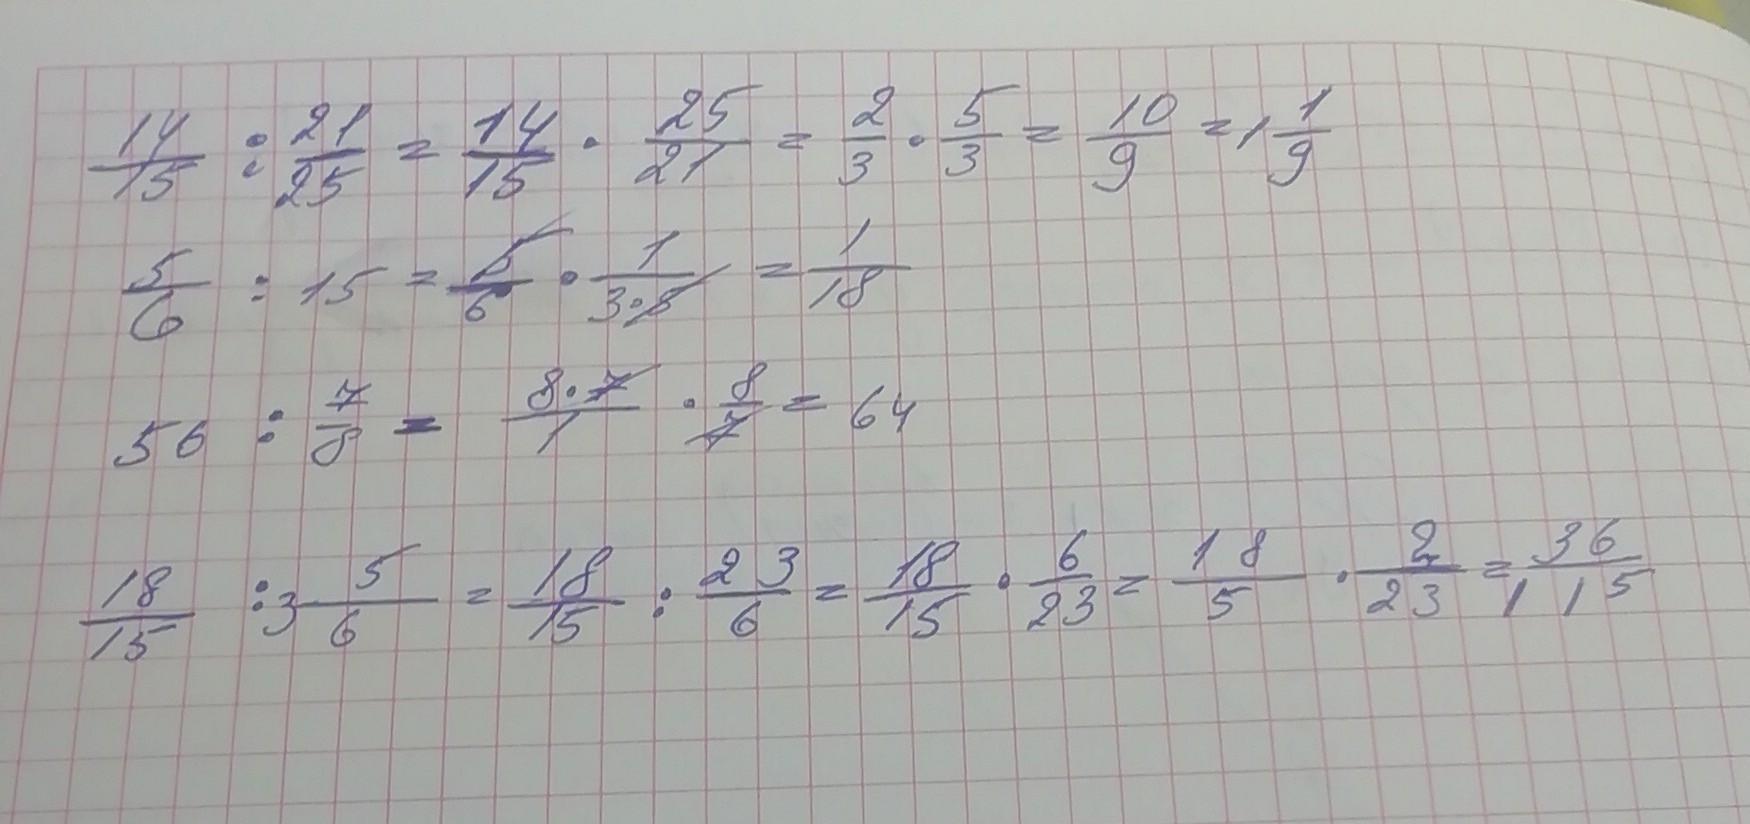 14/15 : 21/25 = 14/15 · 25/21 = 2/3 · 5/3 = 10/9 = 1 1/9
5/6 : 15 = 5/6 · 1/3·5 = 1/18
56 : 7/8 = 8·7/1 · 8/7 = 64
18/15 : 3 5/6 = 18/15 : 23/6 = 18/15 · 6/23 = 18/5 · 2/23 = 36/115